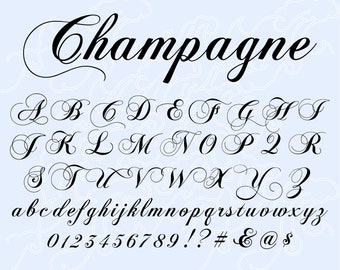 Champagne
A B C D E F G H I
J K L M N O P Q R
S T U V W X Y Z
abcdefghijklmnopqrstuvwxyz
0123456789!?#&@$